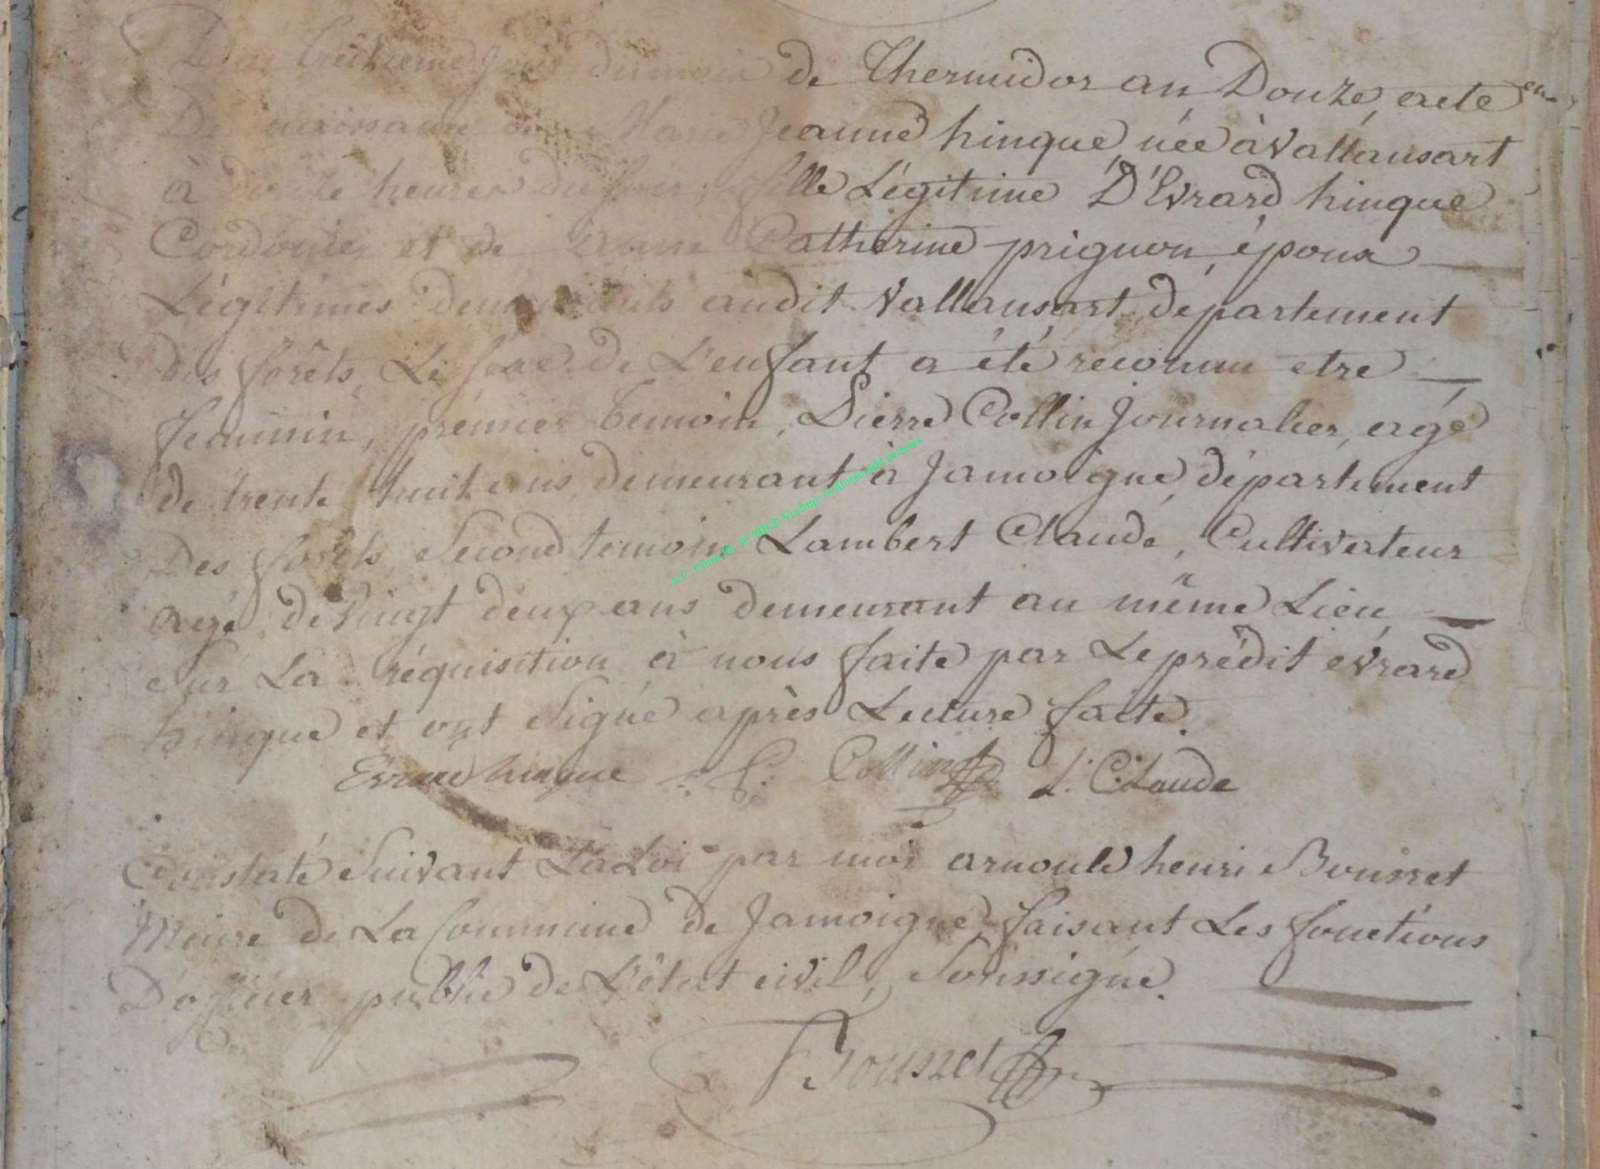 Du treizieme jour du mois de Thermidor an Douze, acte
De naissance de Marie Jeanne hinque née à Vallansart
à heures du fille Légitime D'Evrard hinque
Cordonier et de Anne Catherine prignon, époux
Légitimes demeurants audit Vallansart, département
des forêts, Le sexe de L'enfant a été reconnu etre
feminin, prémier temoin, Pierre Collin Journalier, agé
de trente huit ans demeurant à Jamoigne, département
Des forêts, Second temoin Lambert Claude, Cultivateur
agé de Vingt deux ans demeurant au même Lieu
Sur La réquisition à nous faite par Le prédit évrard
hinque et ont Signé après Lecture faite.
Evrard hinque P: Collin L: Claude
Constaté Suivant La Loi par moi arnould henri Bousset
Maire de La Commune de Jamoigne faisant Les fonctions
D'officier public de L'état civil, Soussigné.
Bousset